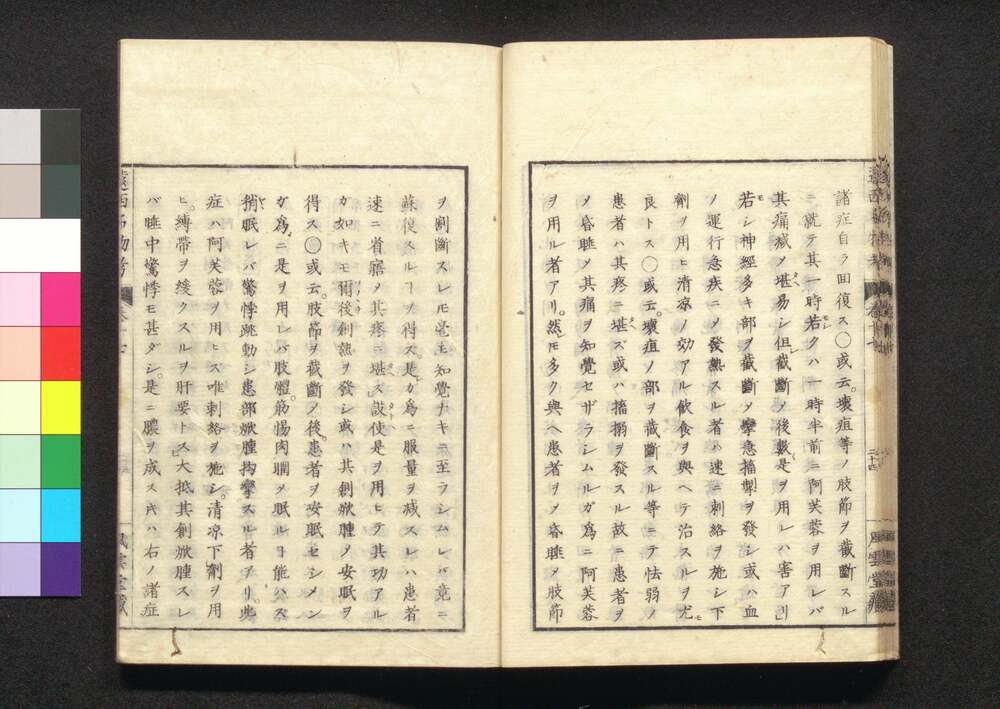 諸症自ラ回復ス〇或云壊疽等ノ肢節ヲ截斷スル
ニ就テ其一時若クハ一時半前ニ阿芙蓉ヲ用レバ
其痛減メ堪易シ但截斷ノ後數是ヲ用レハ害アリ
若シ神經多キ部ヲ截斷メ攣急搐掣ヲ發シ或ハ血
ノ運行急疾ニメ發熱スル者ハ速ニ刺絡ヲ施シ下
劑ヲ用ヒ清凉ノ効アル飲食ヲ與ヘテ治スルヲ尤
良トス〇或云壊疽ノ部ヲ截斷スル等ニテ怯弱ノ
患者ハ其疼ニ堪ズ或ハ搐搦ヲ發スル故ニ患者ヲ
メ昏睡メ其痛ヲ知覺セザラシムルガ為ニ阿芙蓉
ヲ用ル者アリ然𪜈多ク與ヘ患者ヲメ昏睡メ肢節
ヲ割斷スレ𪜈毫モ知覺ナキニ至ラシムレバ竟ニ
蘇復スルヿヲ得ズ是ガ為ニ服量ヲ減スレハ患者
速ニ省寤メ其疼ニ堪ス設使是ヲ用ヒテ其功アル
カ如キモ爾後創熱ヲ發シ或ハ其創焮腫メ安眠ヲ
得ス〇或云肢節ヲ截斷メ後患者ヲ安眠セシメン
ガ為ニ是ヲ用レバ肢體筋惕肉瞤メ眠ルヿ能ハス
稍眠レバ驚悸跳動シ患部焮腫拘攣スル者アリ此
症ハ阿芙蓉ヲ用ヒス唯刺絡ヲ施シ清凉下劑ヲ用
ヒ縛帶ヲ緩クスルヲ肝要トス大抵其創焮腫スレ
バ睡中驚悸モ甚ダシ是ニ膿ヲ成ス𪜈ハ右ノ諸症